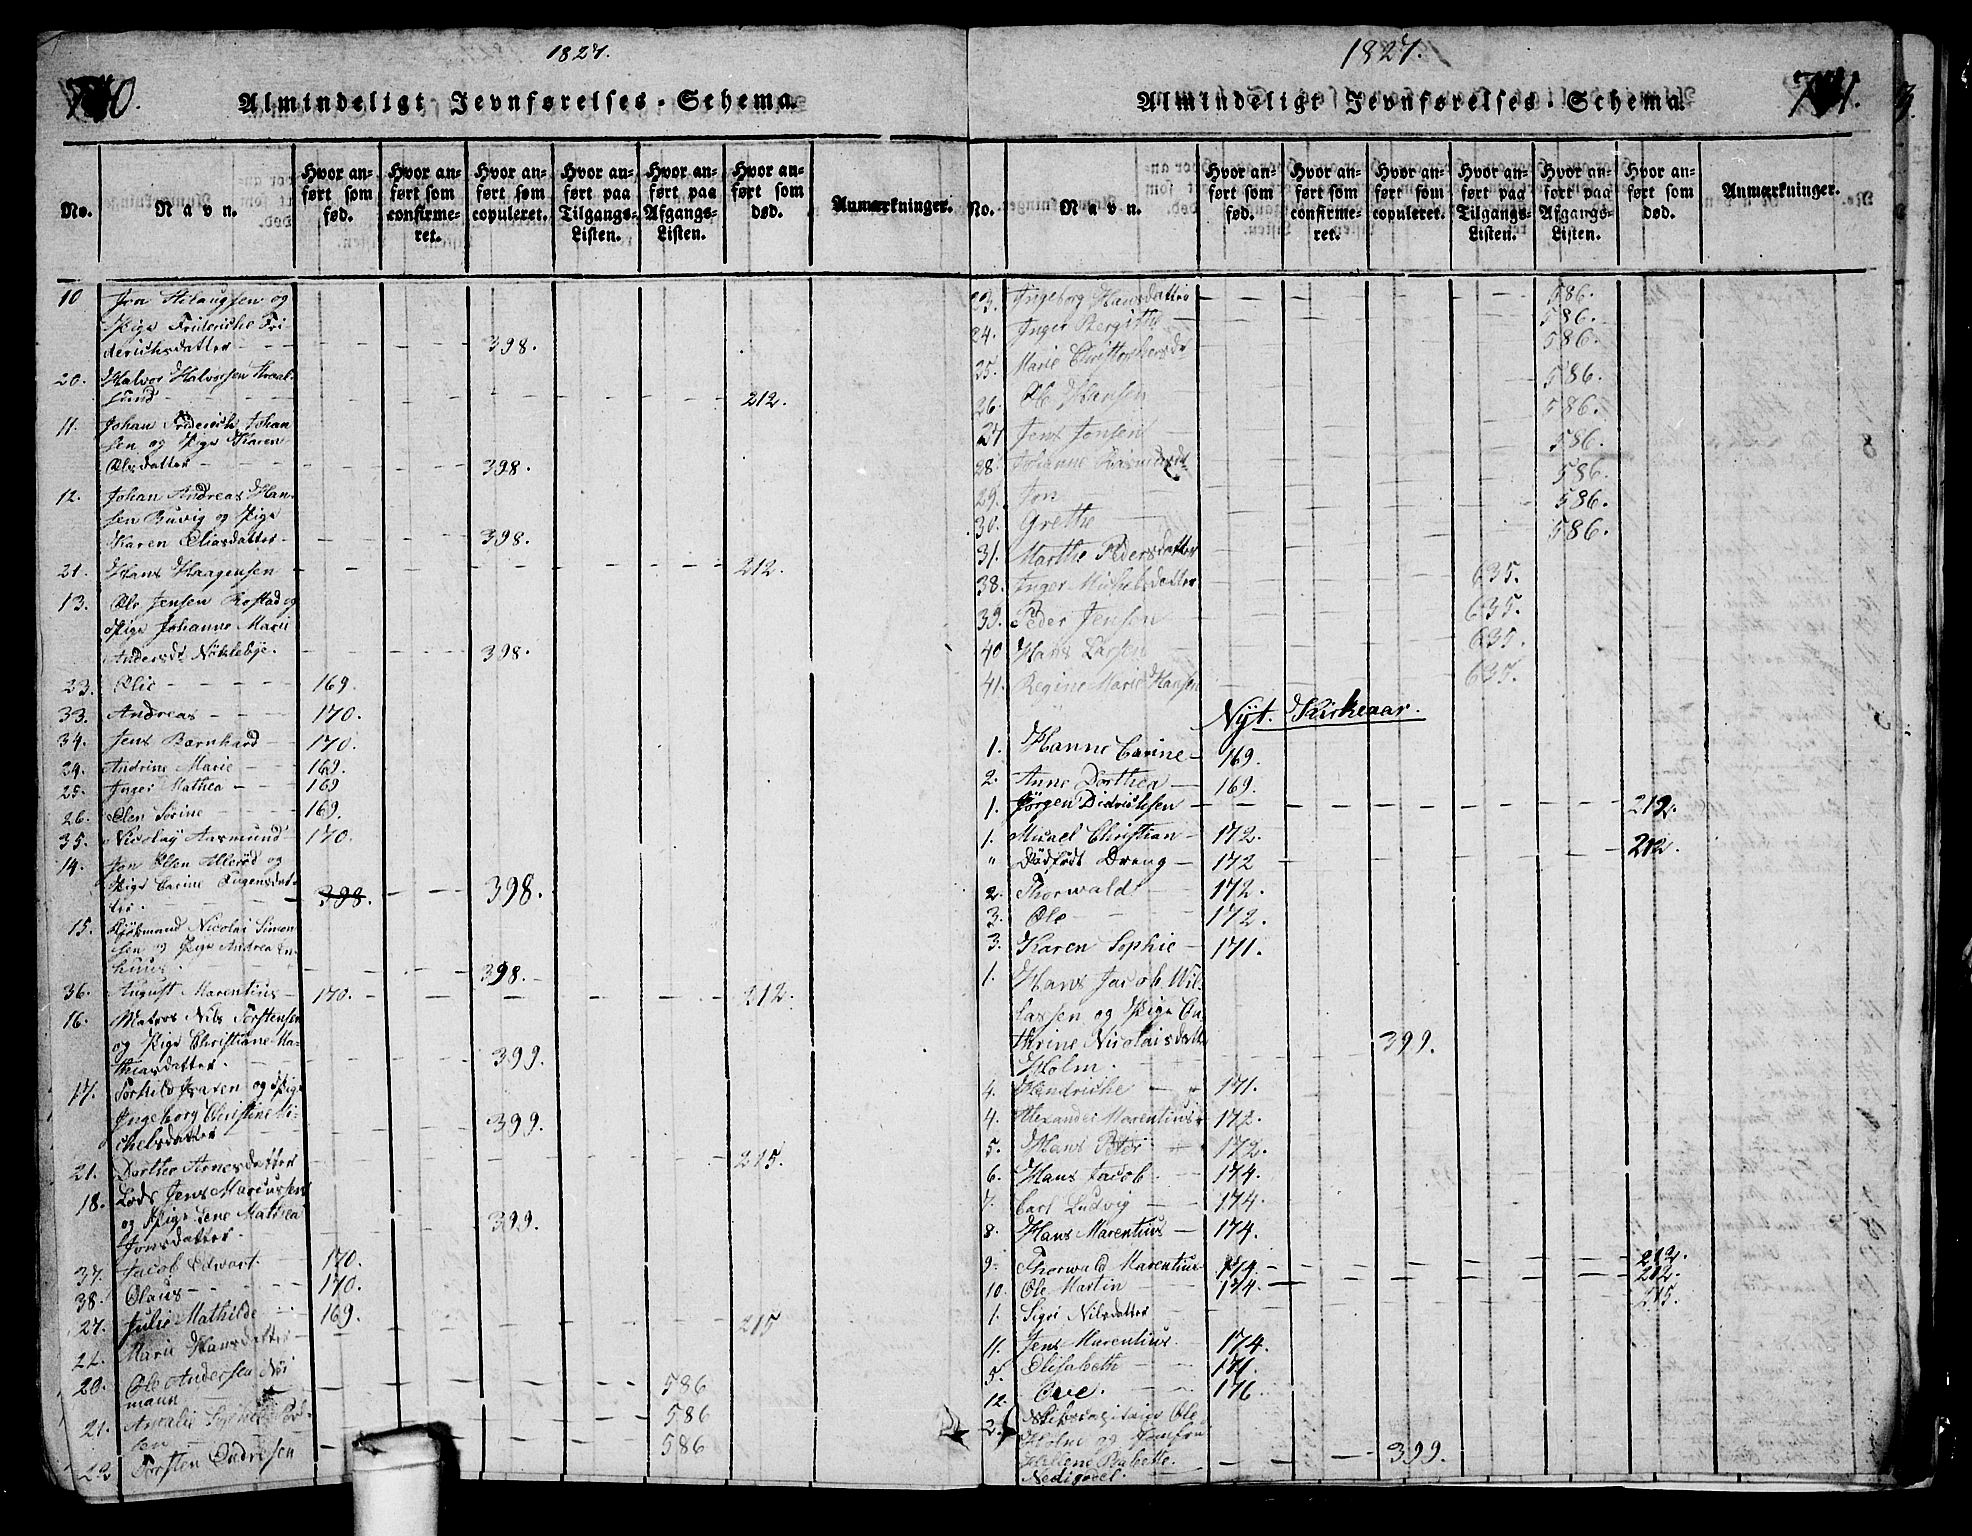 1827.
Almindeligt Jevnførelses-Schema.
No.
Navn.
Hvor anført som fød.
Hvor anført som confirmeret.
Hvor anført som copuleret.
Hvor anført paa Tilgangs-Listen.
Hvor anført paa Afgangs-Listen.
Hvor anført som død.
Anmærkninger.
10 Jon Aslaugsen og
Pige Friderishe Fri
derichsdatter - - - 398.
20. Halvor Halvorsen
Lund - - - 212.
11. Johan Friderich Johan
sen og Pige Karen
Olsdatter - - - 398.
12. Johan Andreas Han-
sen Buvig og Pige
Karen Eliasdatter - - - 398.
21. Hans Haagensen - - - 212.
13. Ole Jensen Rostad og
Pige Johanne Marie
Andersdt Nöklebye. - - - 398.
23. Elie - - - 169.
33. Andreas - - - 170.
34. Jens Bernhard - 170.
24. Andrine Marie - 169.
25. Inger Mathea - - 169
26. Elen Sorine - 169.
35. Nicolay Aasmund - 170.
14. Jon Olsen Alleröd og
Pige Carine Jngensdat-
ter. - 398. - - 398.
15. Nicolai Simon
sen og Pige Andrea En-
huus. - - - 398. -
36. August Marentius - 170. - - - 212.
16. Matros Nils Torstensen
og Pige Christiane Ma-
thiasdatter. - - - 399.
17. Torkild Iversen og Pige
Ingeborg Christine Mi-
chelsdatter - - - 399.
21. Dorthe Arnesdatter - - - 215.
18. Lods Jens Marcussen
og Pige Lene Mathea
Jonsdatter. - - - 399.
37. Jacob Edvart. 170.
38. Olaus - - 170.
27. Julie Mathilde - 169.
22. Marie Hansdatter - - - 215
20. Ole Andersen Nor
mann - - - 586
21. Amalie
sen - - - 586
22 Torsten Endresen - - - 586
1827.
Almindeligt Jevnførelses-Schema.
No.
Navn.
Hvor anført som fød.
Hvor anført som confirmeret.
Hvor anført som copuleret.
Hvor anført paa Tilgangs-Listen.
Hvor anført paa Afgangs-Listen.
Hvor anført som død.
Anmærkninger.
23. Ingeborg Hansdatter - - - 586.
24. Inger Bergitte - - - 586.
25. Marie Christophersdt - - - 586.
26. Ole Hansen - - - 586.
27 Jens Jonsen - - - 586.
28. Johanne Rasmusdt - - - 586.
29. Jon - - - 586.
30. Grethe - - - 586.
31. Marthe Pedersdatter - - - 586.
38. Inger Michelsdatter - - - 635.
39. Peder Jensen - - - 635.
40 Hans Larsen - - - 635.
41. Regine Marie Hansen - - - 635.
Nyt. Kirkeaar.
1. Hanne Carine - 169.
2. Anne Dorthea - 169.
1. Jörgen Didrichsen - - - 212.
1. Micael Christian - 172. - - - 212.
" Dödfödt Dreng - 172 - - -
2. Thorwald - 172.
3. Ole - - - 172.
3. Karen Sophie - 171.
1. Hans Jacob Wil-
lassen og Pige Ca
thrine Nicolaisdatter
Holm. - - - 399.
4. Hendriche - - 171.
4. Alexander Marentius - 172.
5. Hans Peter - 172.
6. Hans Jacob - 174.
7. Carl Ludvig - 174.
8. Hans Marentius - 174.
9. Thorwald Marentius - 174. - - - 212.
10. Ole Martin - 174. - - - 212.
1. Sigri Nilsdatter - - - 215.
11. Jens Marentius. - 174.
5. Elisabeth - - 171
12. Ove. - - 176
2. Skibscapitain Ole
Holm og Jomfru
Hellene Babette
- - - 399.